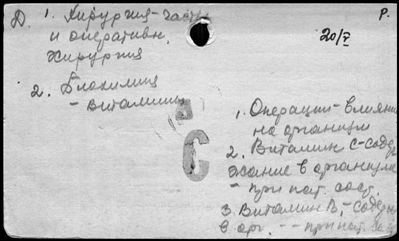 Д. 1. Хирургия-частн.
и оперативн.
хирургия
2. Биохимия
- витамины
Р.
20/V
С
1. Операции-влияние
на организм
2. Витамин С-содер
жание в организме
- при пат. сост.
3. Витамин В,-содерж
в орг. -- при пат. сост.